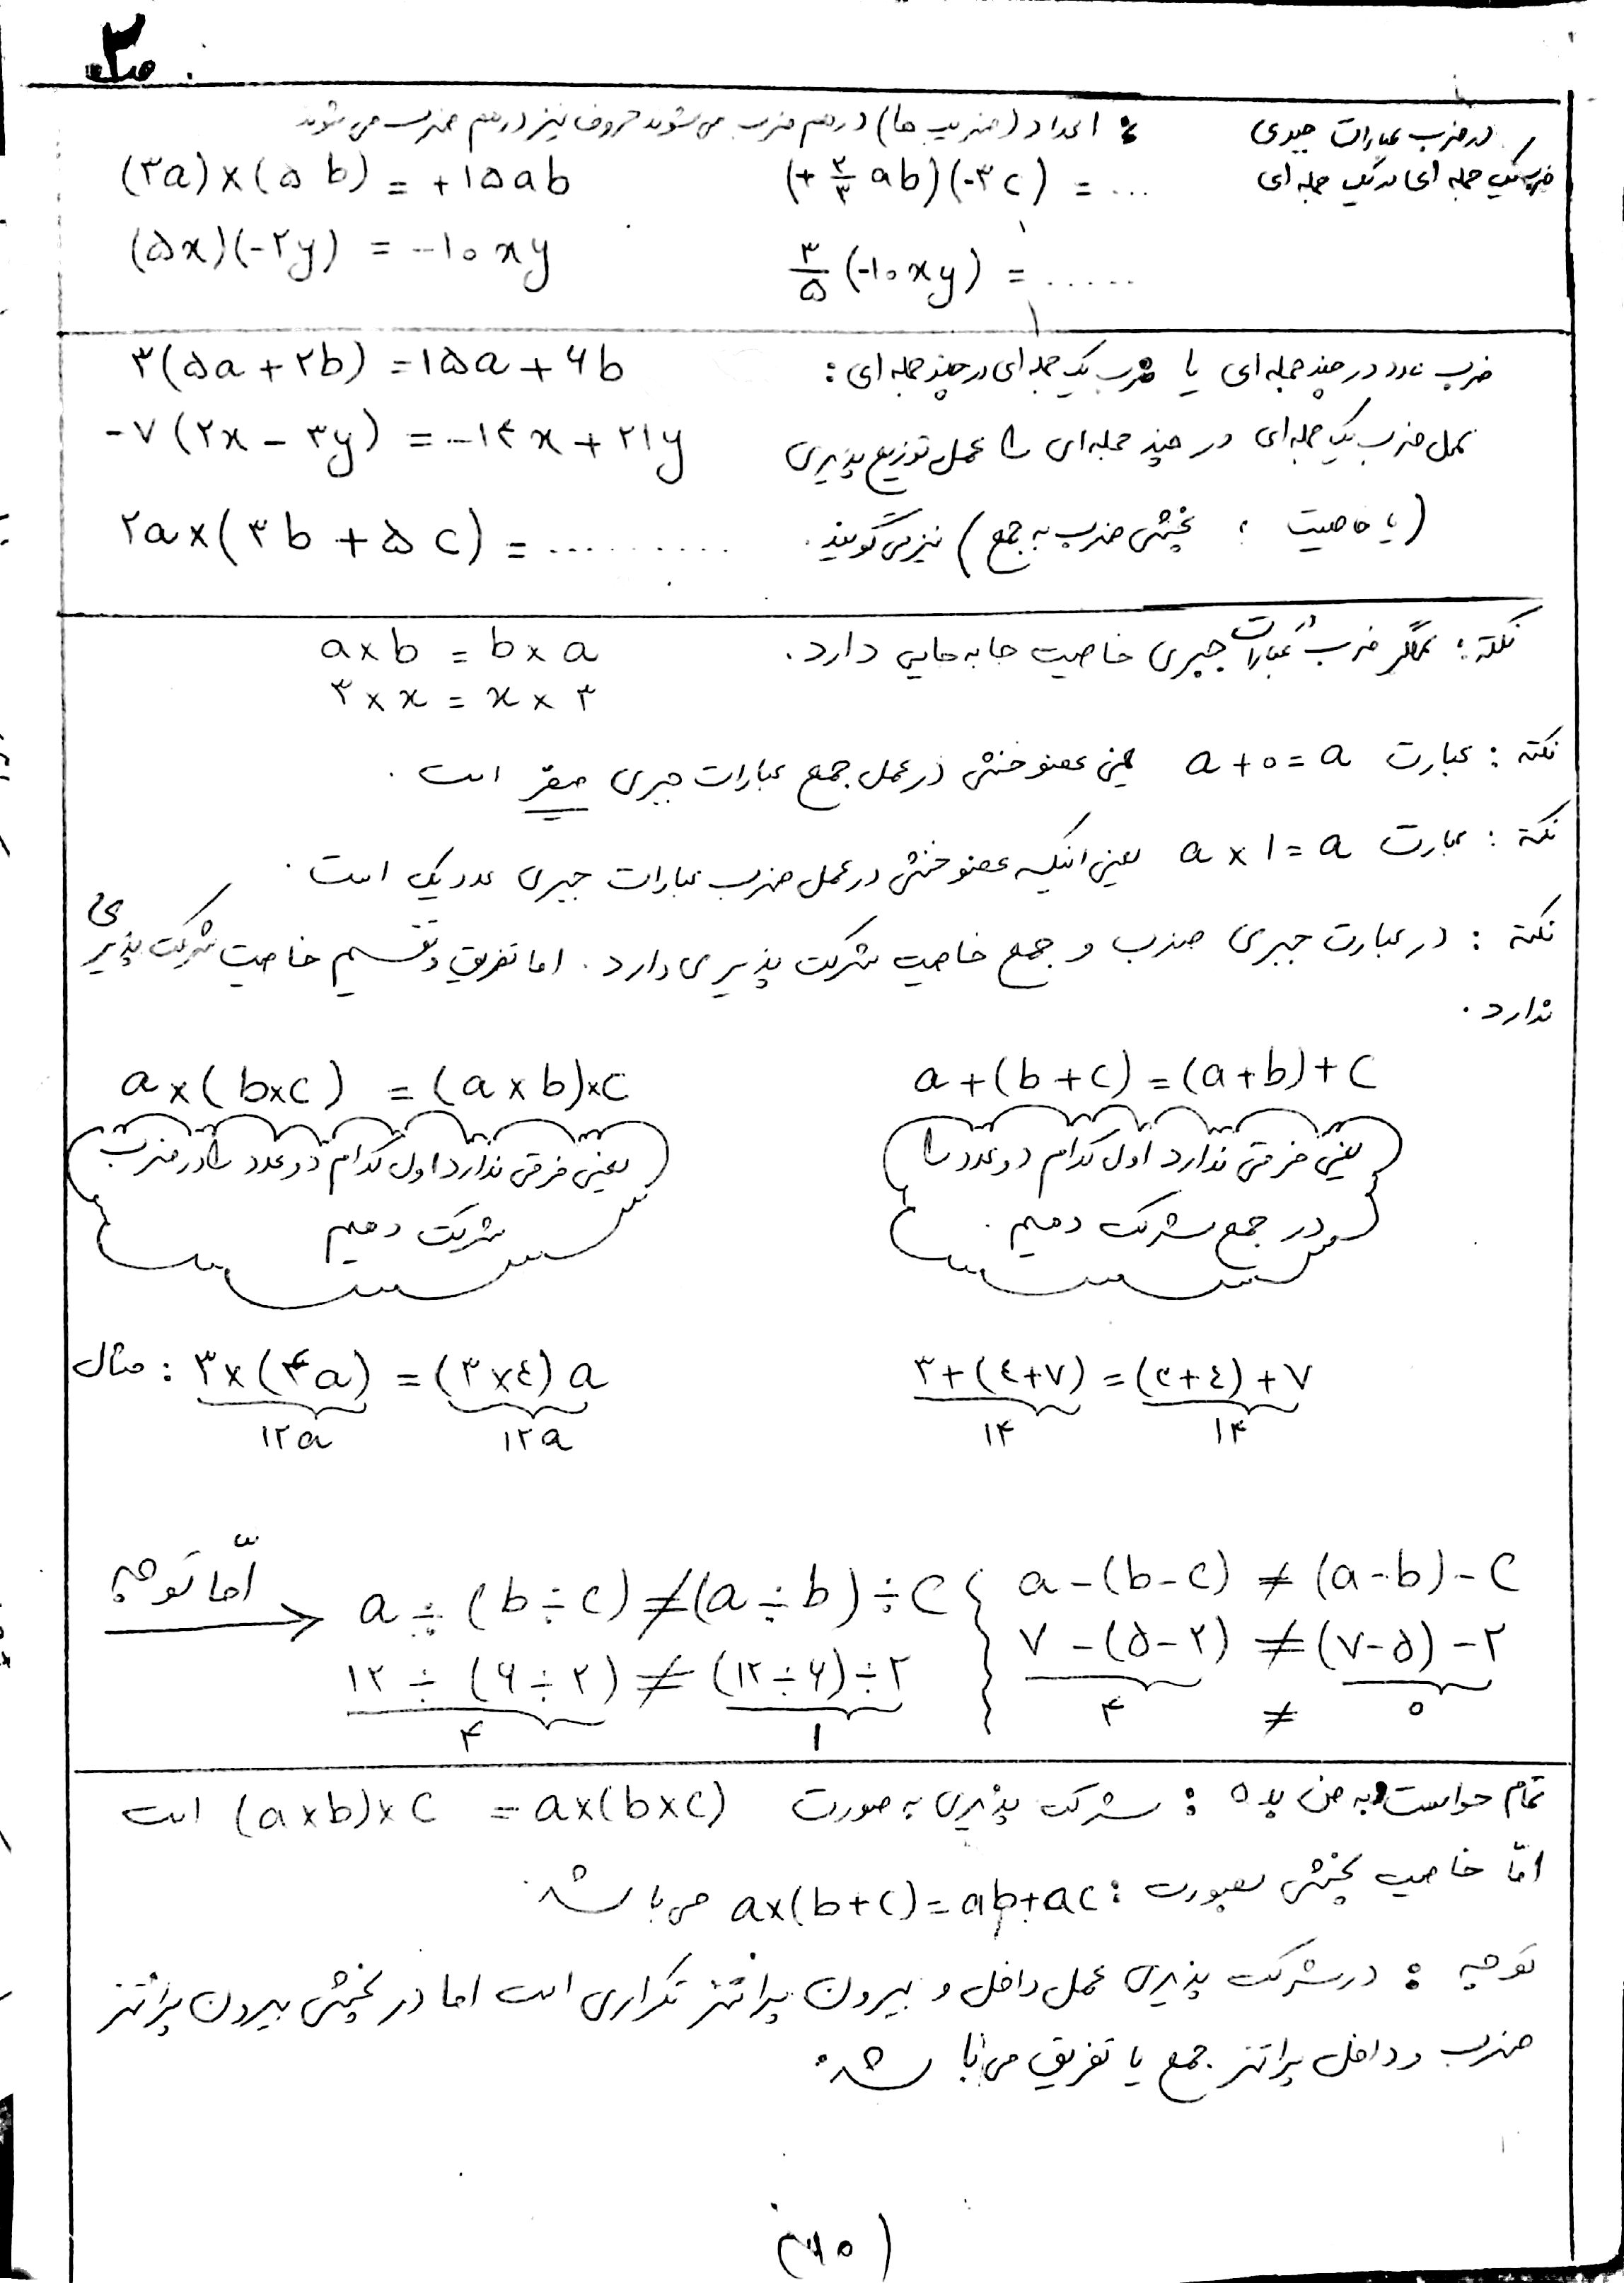 ص ۳
در ضرب عبارات جبری : اعداد (ضریب ها) در هم ضرب می شوند حروف نیز در هم ضرب می شوند
ضرب یک جمله ای در یک جمله ای
(۳a)×(۵b) = +۱۵ab
(+۲/۳ ab)(-۳c) = ...
(۵x)(-۲y) = -۱۰xy
۳/۵ (-۱۰xy) = ......
ضرب عدد در چند جمله ای یا ضرب یک جمله ای در چند جمله ای :
۳(۵a+۲b) = ۱۵a+۶b
عمل ضرب یک جمله ای در چند جمله ای را عمل توزیع پذیری
-۷(۲x-۳y) = -۱۴x+۲۱y
(یا خاصیت : پخشی ضرب به جمع) نیز می گویند.
۲a×(۳b+۵c) = ..........
نکته : عملگر ضرب در عبارات جبری خاصیت جابه جایی دارد.
a×b = b×a
۳×x = x×۳
نکته : عبارت a+۰=a یعنی عضو خنثی در عمل جمع عبارات جبری صفر است.
نکته : عبارت a×۱=a یعنی اینکه عضو خنثی در عمل ضرب عبارات جبری عدد یک است.
نکته : در عبارت جبری ضرب و جمع خاصیت شرکت پذیری دارد. اما تفریق و تقسیم خاصیت شرکت پذیری
ندارد.
a+(b+c)=(a+b)+c
یعنی فرقی ندارد اول کدام دو عدد را
در جمع شرکت دهیم.
a×(b×c) = (a×b)×c
یعنی فرقی ندارد اول کدام دو عدد را در ضرب
شرکت دهیم
۳+(٤+۷) = (۳+٤)+۷
۱۴ ۱۴
مثال : ۳×(۴a) = (۳×٤)a
۱۲a ۱۲a
امّا توجه
a÷(b÷c)≠(a÷b)÷c
۱۲÷(۶÷۲)≠(۱۲÷۶)÷۲
۴ ۱
a-(b-c) ≠ (a-b)-c
۷-(۵-۲) ≠ (۷-۵)-۲
۴ ≠ ۰
تمام حواست به من بده : شرکت پذیری به صورت (a×b)×c = a×(b×c) است
امّا خاصیت پخشی بصورت : a×(b+c)=ab+ac می باشد.
توجه : در شرکت پذیری عمل داخل و بیرون پرانتز تکراری است اما در پخشی بیرون پرانتز
ضرب و داخل پرانتز جمع یا تفریق می باشد.